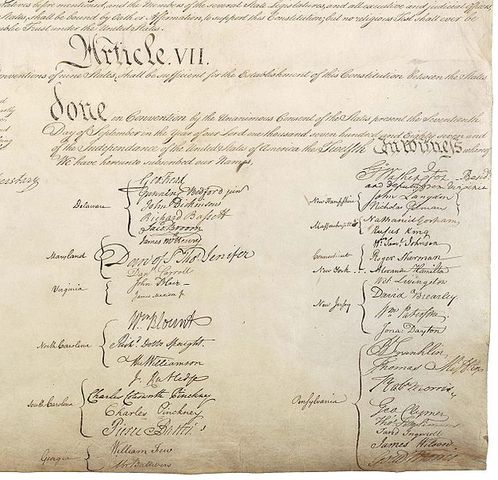 before mentioned, and the Members of the several State Legislatures, and all executive and judicial officers
States, shall be bound by Oath or Affirmation, to support this Constitution; but no religious Test shall ever be
public Trust under the United States.
Article. VII.
Conventions of nine States, shall be sufficient for the Establishment of this Constitution between the States
done in Convention by the Unanimous Consent of the States present the Seventeenth
Day of September in the Year of our Lord one thousand seven hundred and Eighty seven and
of the Independance of the United States of America the Twelfth In witness whereof
We have hereunto subscribed our Names,
Delaware
Geo: Read
Gunning Bedford jun
John Dickinson
Richard Bassett
Jaco: Broom
Maryland
James McHenry
Dan of St Thos Jenifer
Danl Carroll
Virginia
John Blair
North Carolina
Wm Blount
Richd Dobbs Spaight
Hu Williamson
South Carolina
J. Rutledge
Charles Cotesworth Pinckney
Charles Pinckney
Pierce Butler
Georgia
William Few
Abr Baldwin
Go Washington
and deputy from Virginia
New Hampshire
John Langdon
Nicholas Gilman
Massachusetts
Nathaniel Gorham
Rufus King
Connecticut
Wm Saml Johnson
Roger Sherman
New York
Alexander Hamilton
New Jersey
Wil: Livingston
David Brearley
Wm Paterson
Jona: Dayton
Pensylvania
B Franklin
Thomas Mifflin
Robt Morris
Geo. Clymer
Thos FitzSimons
Jared Ingersoll
James Wilson
Gouv Morris